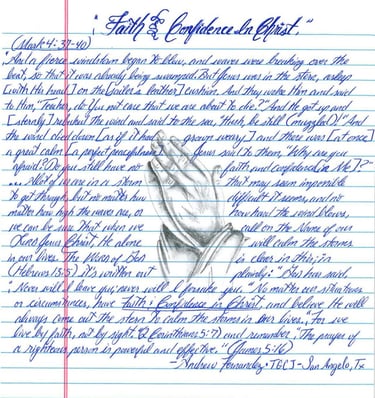 "Faith & Confidence In Christ."
(Mark 4:37-40)
"And a fierce windstorm began to blow, and waves were breaking over the
boat, so that it was already being swamped. But Jesus was in the stern, asleep
[with His head] on the [sailor's leather] cushion. And they woke Him and said
to Him, "Teacher, do You not care that we are about to die?" And He got up and
[sternly] rebuked the wind and said to the sea, "Hush, be still (muzzled)!" And
the wind died down [as if it had grown weary] and there was [at once]
a great calm [a perfect peacefulness]. Jesus said to them, "Why are you
afraid? Do you still have no faith and confidence [in Me]?"
... All of us are in a storm that may seem impossible
to get through, but no matter how difficult it seems, and no
matter how high the waves are, or how hard the wind blows,
we can be sure that when we call on the Name of our
Jesus Christ, He alone will calm the storms
in our lives. The Word of God is clear in this; in
(Hebrews 13:5) it's written out plainly: "God has said,
"Never will I leave you; never will I forsake you." No matter our situations
or circumstances, have Faith & Confidence in Christ, and believe He will
always come out the stern to calm the storms in our lives. "For we
live by faith, not by sight." (2 Corinthians 5:7) and remember "The prayer of
a righteous person is powerful and effective." (James 5:16)
- Andrew Fernandez - TDCJ - San Angelo, Tx